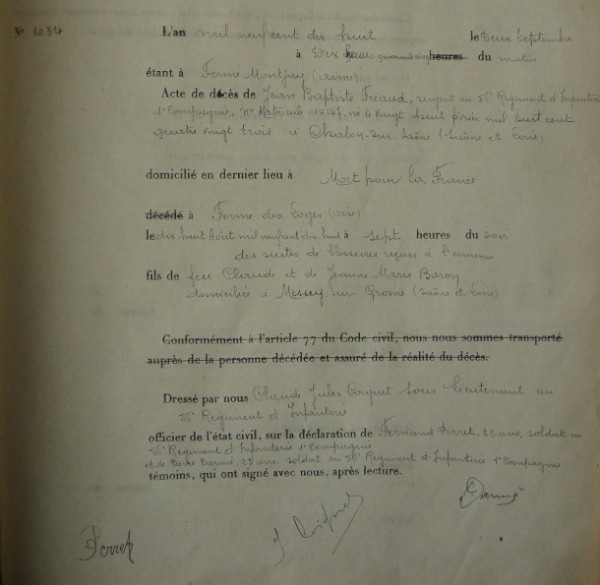 No 1034
L'an mil neuf cent dix huit le deux Septembre
à dix heures quarante cinq heures du matin
étant à Ferme Montpay (aisne)
Acte de décès de Jean Baptiste Freaud, au 56e Regiment d'Infanterie
1e Compagnie, No Matricule né le vingt huit mil huit cent
quatre vingt trois à Chalon-sur-Saône (Saône et Loire)
domicilié en dernier lieu à Mort pour la France
décédé à Ferme des Loges (oise)
le dix huit août mil neuf cent dix huit à sept heures du soir
des suites de blessures reçues à l'ennemi
fils de feu Claude et de Jeanne Marie Baroy
domiciliée à Messey sur Grosne (Saône et Loire)
Conformément à l'article 77 du Code civil, nous nous sommes transporté
auprès de la personne décédée et assuré de la réalité du décès.
Dressé par nous Claude Jules Sous Lieutenant au
56e Regiment d'Infanterie
officier de l'état civil, sur la déclaration de Fernand Perret, 22 ans, soldat au
56e Regiment d'Infanterie 1e Compagnie
et de Darmé, ans, soldat au 56e Regiment d'Infanterie 1e Compagnie
témoins, qui ont signé avec nous, après lecture.
Darmé
Perret